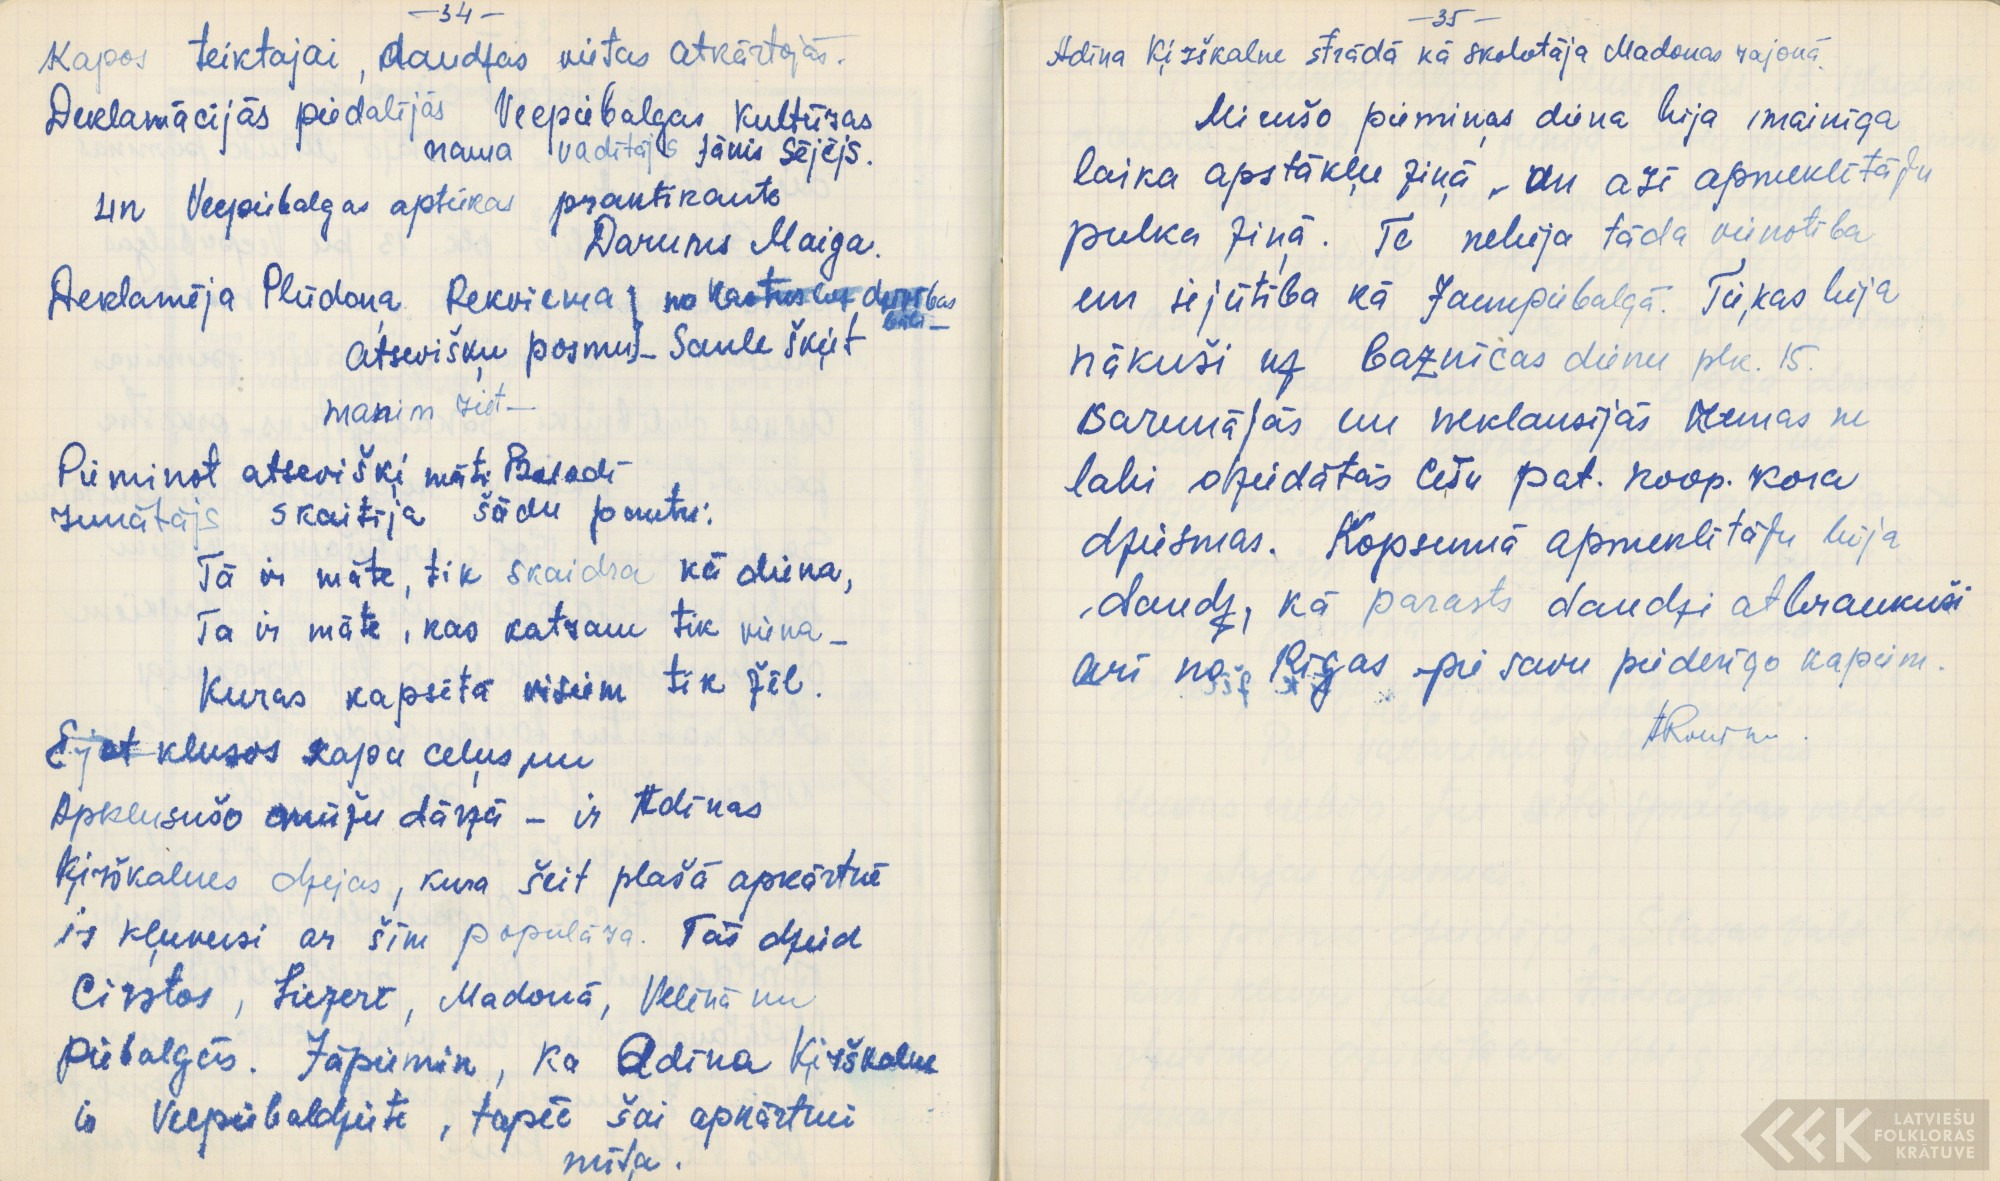 -34-
Kapos teiktajai, daudzas vietas atkārtojās.
Deklamācijās piedalījās Vecpiebalgas Kultūras
nama vadītājs Jānis Sējējs.
un Vecpiebalgas aptiekas praktikante
Maiga.
Deklamēja Plūdoņa Rekviēma no
atsevišķu posmu - Saule šķiet
manim riet-
Pieminot atsevišķi māti
runātājs skaitīja šādu pantu:
Tā ir māte, tik skaidra kā diena,
Ta ir māte, kas katram tik viena -
Kuras kapsētā visiem tik žēl.
Ejot klusos kapu ceļus, un
Apklusušo mūžu dārzā - ir Adīnas
Ķirškalnes dzejas, kura šeit plašā apkārtnē
ir kļuvusi ar šīm populāra. Tās dzied
Cirstos, Liezerē, Madonā, Velēnā un
Piebalgās. Jāpiemin, ka Adīna Ķirškalne
ir Vecpiebaldziete, tapēc šai apkārtnei
mīļa.
-35-
Adīna Ķirškalne strādā kā skolotāja Madonas rajonā.
Mirušo piemiņas diena bija mainīga
laika apstākļu ziņā, un arī apmeklētāju
pulka ziņā. Te nebija tāda vienotība
un iejūtība kā Jaunpiebalgā. Tie, kas bija
nākuši uz baznīcas dienu plk. 15.
sarunājās un neklausījās Nemas ne
labi dziedātās Cēsu pat. koop. kora
dziesmas. Kopsummā apmeklētāju bija
daudz, kā parasts daudzi atbraukuši
arī no Rīgas pie savu piederīgo kapiem.
LATVIEŠU
FOLKLORAS
KRĀTUVE